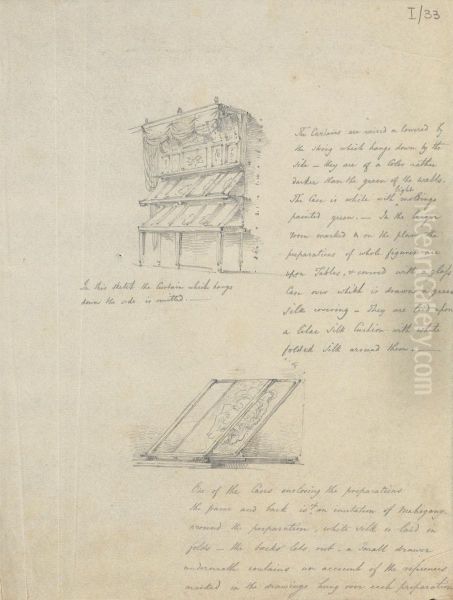 I/33
The Curtains are raised & lowered by
the string which hangs down by the
side – they are of a Color rather
darker than the green of the
The Case is white with light moldings
painted green. – In the larger
room marked on the plan the
preparations of whole figures are
upon Tables, & covered with a glass
Case over which is drawn a green
silk covering – They are laid upon
a lilac silk Cushion with white
folded silk around them. –
In this sketch the Curtain which hangs
down the side is omitted. –
One of the Cases enclosing the preparations
the frame and back is an imitation of Mahogany
around the preparation, white silk is laid in
folds – the backs lets out. a small drawer
underneath contains an account of the references
marked in the drawings hung over each preparation